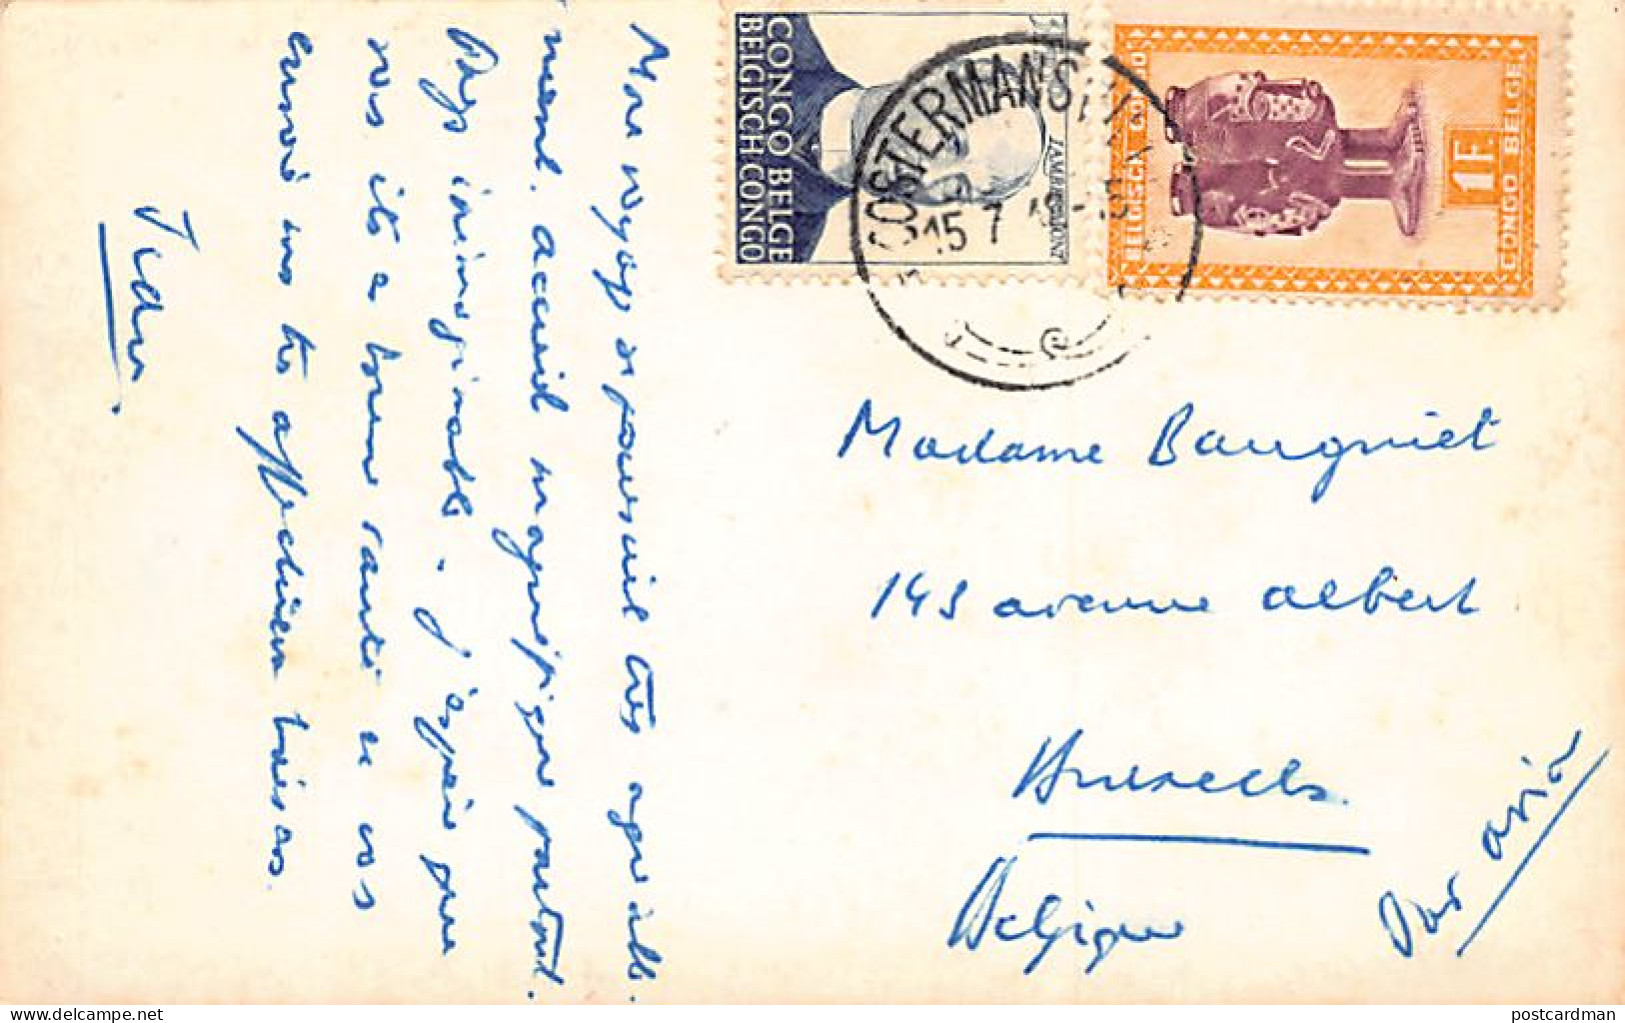 Mon voyage se poursuit très agréable-
ment. Accueil magnifique partout.
Pays inimaginable. J'espère que
vos êtes en bonne santé et vos
envoie mes très affectueux baisers.
Jean.
CONGO BELGE
BELGISCH CONGO
JAMBERS DUMONT
COSTERMANSVILLE
15 7
BELGISCH CONGO
1F
CONGO BELGE
Madame Baugniet
143 avenue Albert
Bruxelles.
Belgique
Par avion
postcardman